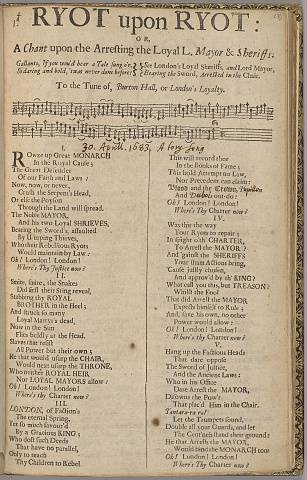 RYOT upon RYOT:
OR,
A Chant upon the Arresting the Loyal L. Mayor & Sheriffs.
Gallants, If you would hear a Tale so
So daring and bold, 'twas never done before;
See London's Loyal Sheriffs, and Lord Mayor,
Bearing the Sword, Arrested in the Chair.
To the Tune of, Burton Hall, or London's Loyalty.
30. Aprill. 1683. A Tory Song
I.
ROwze up Great MONARCH
In the Royal Cause;
The Great Defender
Of our Faith and Laws:
Now, now, or never,
Crush the Serpent's Head,
Or else the Poyson
Through the Land will spread.
The Noble MAYOR,
And his two Loyal SHRIEVES,
Bearing the Sword's, assaulted
By Usurping Thieves,
Who their Rebellious Ryots
Would maintain by Law:
Oh! London! London!
Where's Thy Justice now?
Smite, smite, the Snakes
Did first their Sting reveal,
Stabbing thy ROYAL
BROTHER in the Heel;
And struck so many
Loyal Martyrs dead,
Now in the Sun
Flies boldly at the Head.
Slaves that resist
All Power but their own;
He that would usurp the CHAIR,
Would next usurp the THRONE,
Who neither ROYAL HEIR
Nor LOYAL MAYORS allow:
Oh! London! London!
Where's thy Charter now?
III.
LONDON, of Faction's
The eternal Spring,
Yet so much favour'd
By a Gracious KING;
Who dost such Deeds
That have no parallel,
Only to teach
Thy Children to Rebel
This will record thee
In the Books of Fame;
This bold Attempt no Law,
Nor Precedent can claim:
and the Crown,
And out-do:
Oh! London! London!
Where's Thy Charter now?
IV.
Was this the way
Your Ryots to repair;
In spight o'th' CHARTER,
To Arrest the MAYOR?
And 'gainst the SHERIFFS
Your sham Actions bring,
Cause justly chosen,
And approv'd by th' KING?
What call you this, but TREASON?
Whilst the Fool
That did Arrest the MAYOR
Expects himself to Rule;
And, save his own, no other
Power would allow:
Oh! London! London!
Where's thy Charter now?
V.
Hang up the Factious Heads
That dare oppose
The Sword of Justice,
And the Ancient Laws:
Who in his Office
Dare Arrest the MAYOR,
Disowns the Pow'r
That plac'd Him in the Chair.
Tantara-ra ra!
Let the Trumpets sound,
Double all your Guards, and let
The Centinels stand their ground:
He that Arrests the MAYOR,
Would bind the MONARCH too:
Oh! London! London!
Where's Thy Charter now?